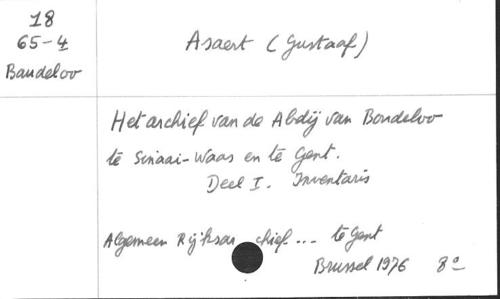 18
65-4
Baudeloo
Asaert (Gustaaf)
Het archief van de Abdij van Boudeloo
te Sinaai-Waas en te Gent.
Deel I. Inventaris
Algemeen Rijksar chief ... te Gent
Brussel 1976 8°